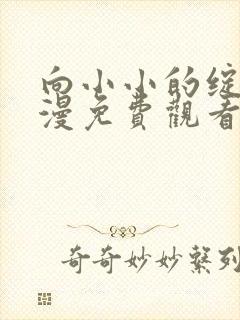 向小小的綻
漫免費觀看
奇奇妙妙繫列